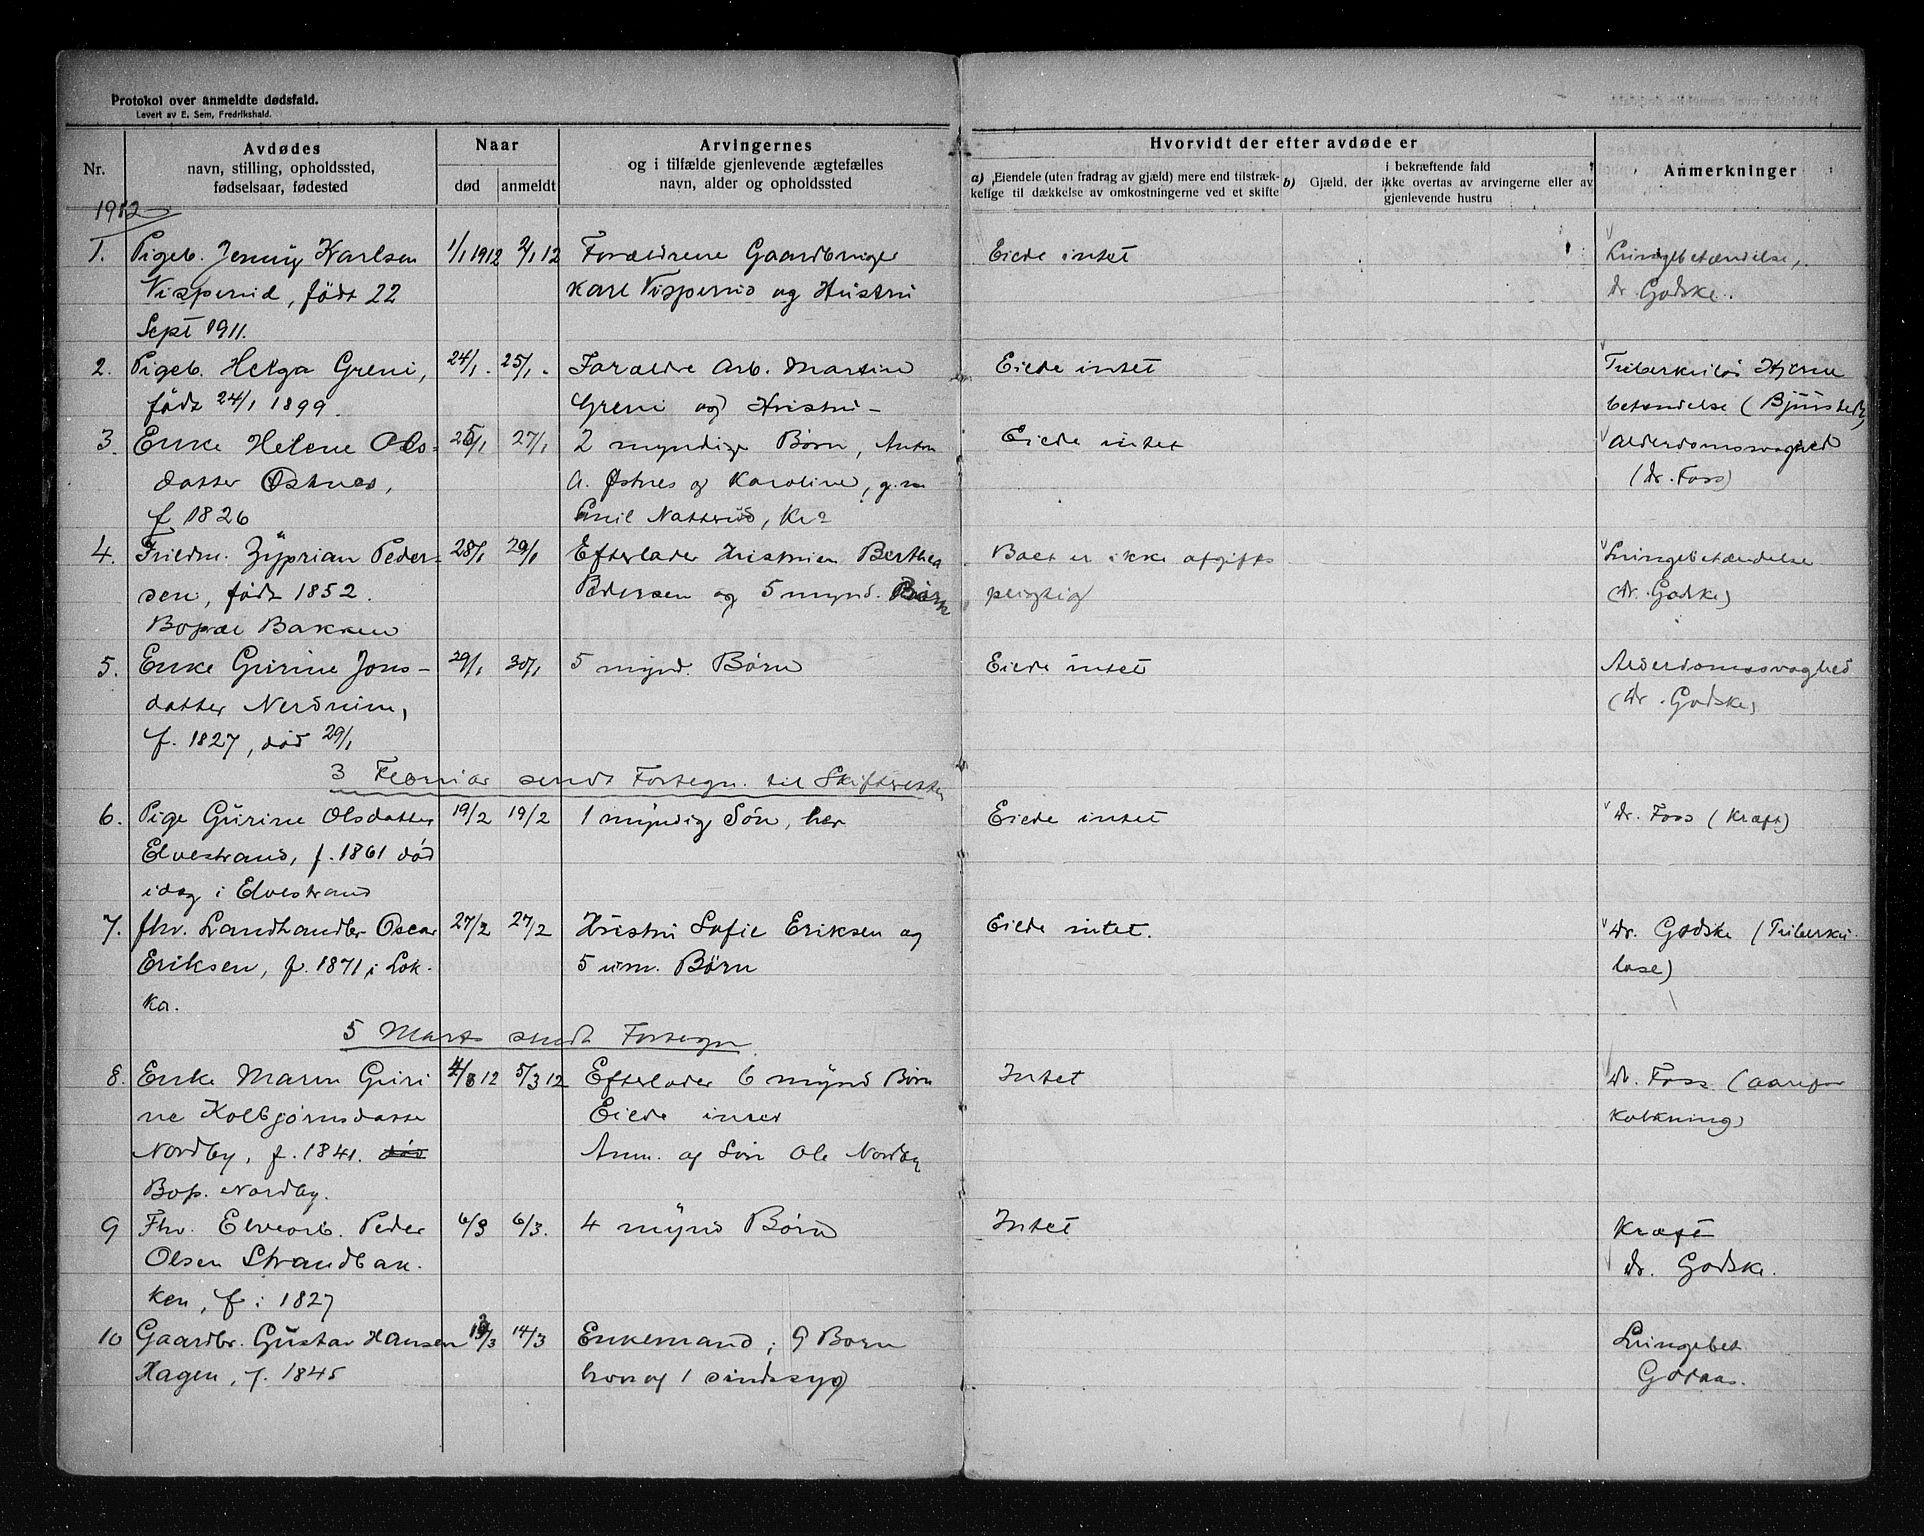 Protokol over anmeldte dødsfald.
Levert av E. Sem, Fredrikshald.
Nr.
Avdødes
navn, stilling, opholdssted,
fødselsaar, fødested
Naar
død anmeldt
Arvingernes
og i tilfælde gjenlevende ægtefælles
navn, alder og opholdssted
Hvorvidt der efter avdøde er
a) Eiendele (uten fradrag av gjæld) mere end tilstræk-
kelige til dækkelse av omkostningerne ved et skifte
b) Gjæld, der
i bekræftende fald
ikke overtas av arvingerne eller av
gjenlevende hustru
Anmerkninger
1912
1. Pigeb. Jenny Karlsen 1/1 1912 2/1 12 Forældrene Gaardbruger Eiede intet Lungebetændelse,
født 22 Karl og Hustru dr. Godske.
Sept 1911.
2. Pigeb. Helga Greni, 24/1. 25/1. Forældre Arb. Martin Eiede intet Tuberkuløs Hjerne
født 24/1 1899. Greni og Hustru betændelse (Bjurstedt)
3. Enke Helene Ols- 26/1 27/1 2 myndige Børn, Anton Eiede intet Alderdomssvaghed
datter Østnes, A. Østnes og Karoline, g. m (Dr. Foss)
f 1826 Emil
4. Zyprian Peder- 28/1 29/1 Efterlader Hustruen Berthea Boet er ikke afgifts Lungebetændelse
sen, født 1852. Pedersen og 5 mynd. Børn pligtig (Dr. Godske)
Bopæl Bakken
5. Enke Gurine Jons- 29/1 30/1 5 mynd. Børn Eiede intet Alderdomssvaghed
datter Nerdrum, (Dr. Godske)
f. 1827, død 29/1
3 Februar sendt Fortegn. til Skifteretten
6. Pige Gurine Olsdatter 19/2 19/2 1 myndig Søn, her Eiede intet Dr. Foss (Kræft)
Elvestrand, f. 1861 død
idag i Elvestrand
7. fhv. Landhandler Oscar 27/2 27/2 Hustru Sofie Eriksen og Eiede intet. Dr. Godske (Tuberku-
Eriksen, f. 1871 i Lok- 5 um. Børn lose)
ka.
5 Marts sendt Fortegn
8. Enke Maren Guri 4/3 12 5/3 12 Efterlader 6 mynd Børn Intet Dr. Foss (aarefor
ne Kolbjørnsdatter Eiede intet kalkning)
Nordby, f. 1841. død Anm. og Søn Ole Nordby
Bop. Nordby.
9 Fhv. Elvearb. Peder 6/3 6/3. 4 mynd Børn Intet Kræft
Olsen Strandbak- dr. Godske.
ken, f. 1827
10 Gaardbr. Gustav Hansen 13/3 14/3 Enkemand; 9 Børn Lungebet
Hagen, f. 1845 hvoraf 1 sindssyg